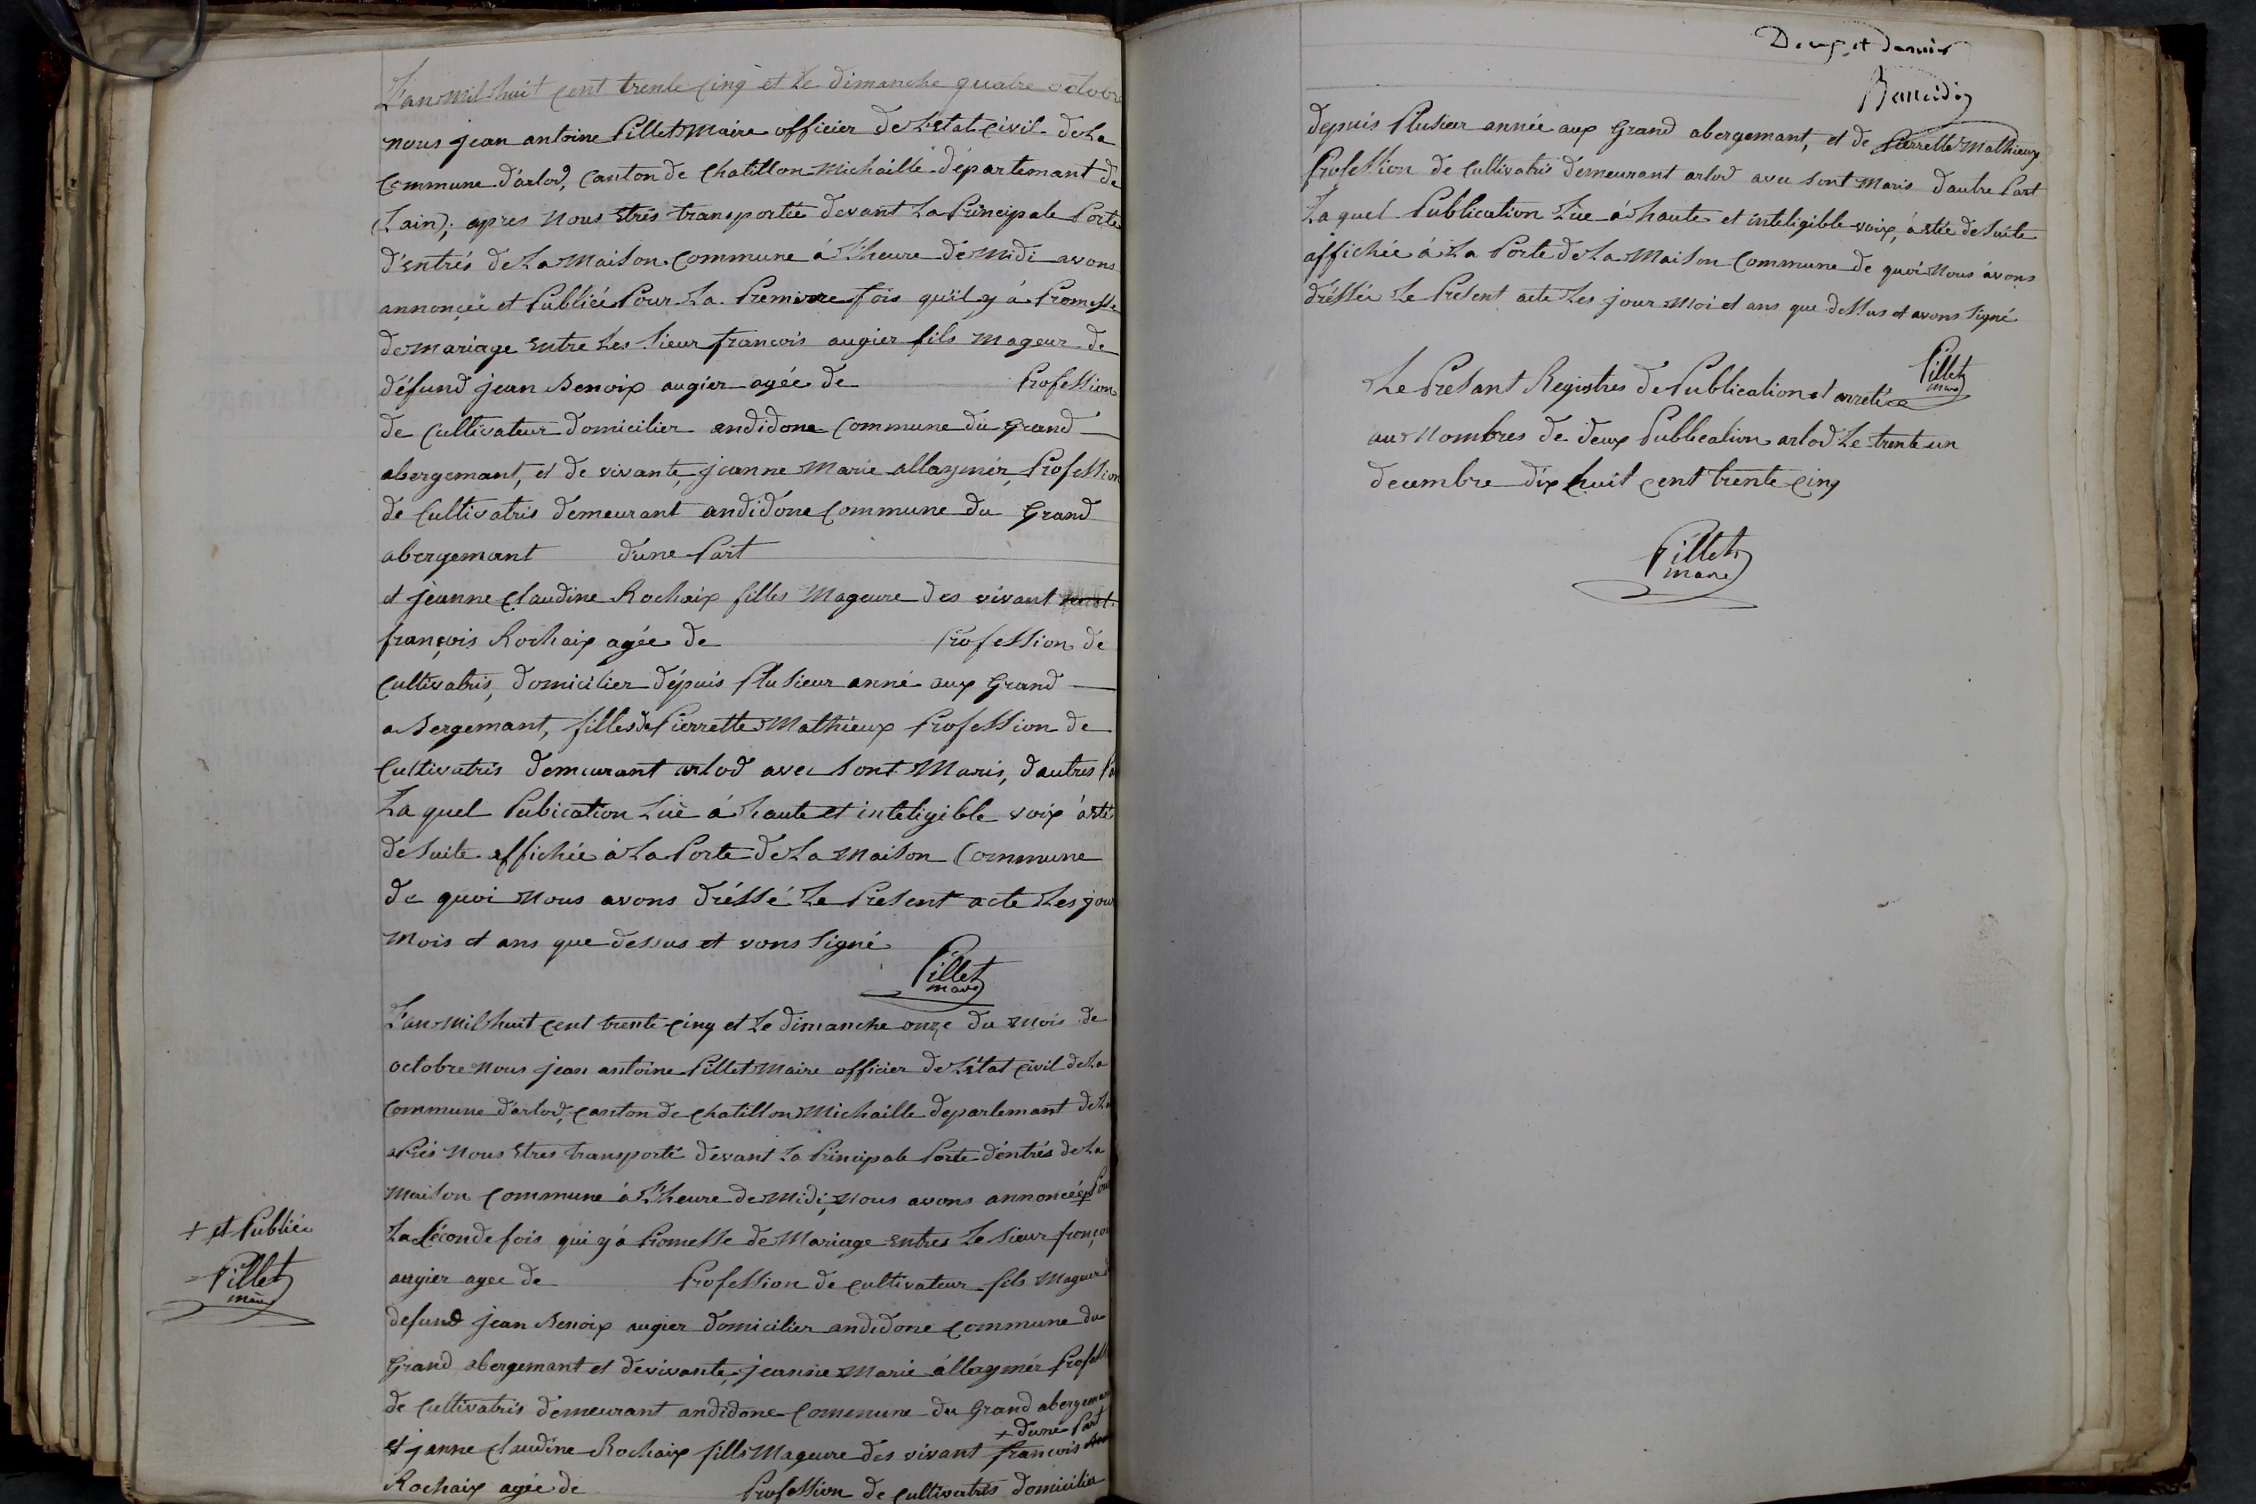 L'an mil huit cent trente cinq et le dimanche quatre octobre
nous jean antoine Pillet Maire officier de L'etat civil de La
Commune d'arlod, Canton de Chatillon Michaille département de
(Lain); apres nous etrés transportée devant La Principale Porte
d'entrés de La Maison Commune á L'heure dé Midi avons
annonçée et Publiée Pour La Premiere fois quïl y á Promesse
de Mariage Entre Les Sieur francois augier fils Mageur de
défund jean Benoix augier agée de Profession
de Cultivateur domicilier andidone Commune du grand
abergemant, et de vivante, jeanne Marie allaymér, Profession
dé Cultivatris demeurant andidone Commune du Grand
abergemant d'une Part
et jeanne Claudine Rochaix filles Mageure des vivant
françois Rochaix agée de Profession dé
Cultivatris, domicilier dépuis Plusieur anné aux Grand
abergemant, filles de Pierrette Mathieux Profession de
Cultivatris demeurant arlod avec sont Maris, dautres Pa
La quel Pubication Luë á haute et inteligible voix á eté
de suite affichée á La Porte de La Maison Commune
de quoi Nous avons dréssé Le Present acte Les jour
Mois et ans que dessus et vons signé
Pillet
maire
L'an Mil huit cent trente cinq et Le dimanche onze du Mois de
octobre Nous jean antoine Pillet Maire officier de L'état civil de La
Commune d'arlod, Canton de Chatillon Michaille departemant de La
aprés Nous Etres transporté devant La Principale Porte d'entrés de La
Maison Commune á L'heure de Midi, Nous avons annoncéé + Pour
+ et Publiée
Pillet
maire
La séconde fois qui y á Promesse de Mariage Entres Le Sieur françois
augier agee de Profession de cultivateur fils Mageur d
defund jean Benoix augier domicilier andidone Commune du
Grand abergemant et dévivante, jeanne Marie állaymér Profess
de Cultivatris demeurant andidone Commune du Grand abergemant
+ dune Part
et janne Claudine Rochaix fills Mageure des vivant francois
Rochaix agée de Profession de cultivatris domicilia
Deux et dernier
depuis Plusieur année aux Grand abergemant, et de Pierrette Mathieux
Profession de Cultivatris demeurant arlod avec sont Maris dautre Part
La quel Publication Lue á haute et inteligible voix, á etée de Suite
affichée á La Porte de La Maison Commune de quoi Nous ávons
dréssée Le Present acte Les jour Moi et ans que dessus et avons signé
Pillet
maire
Le Presant Registres de Publication et arretée
aux Nombres de deux Publication arlod Le trente un
decembre dix huit cent trente cinq
Pillet
maire